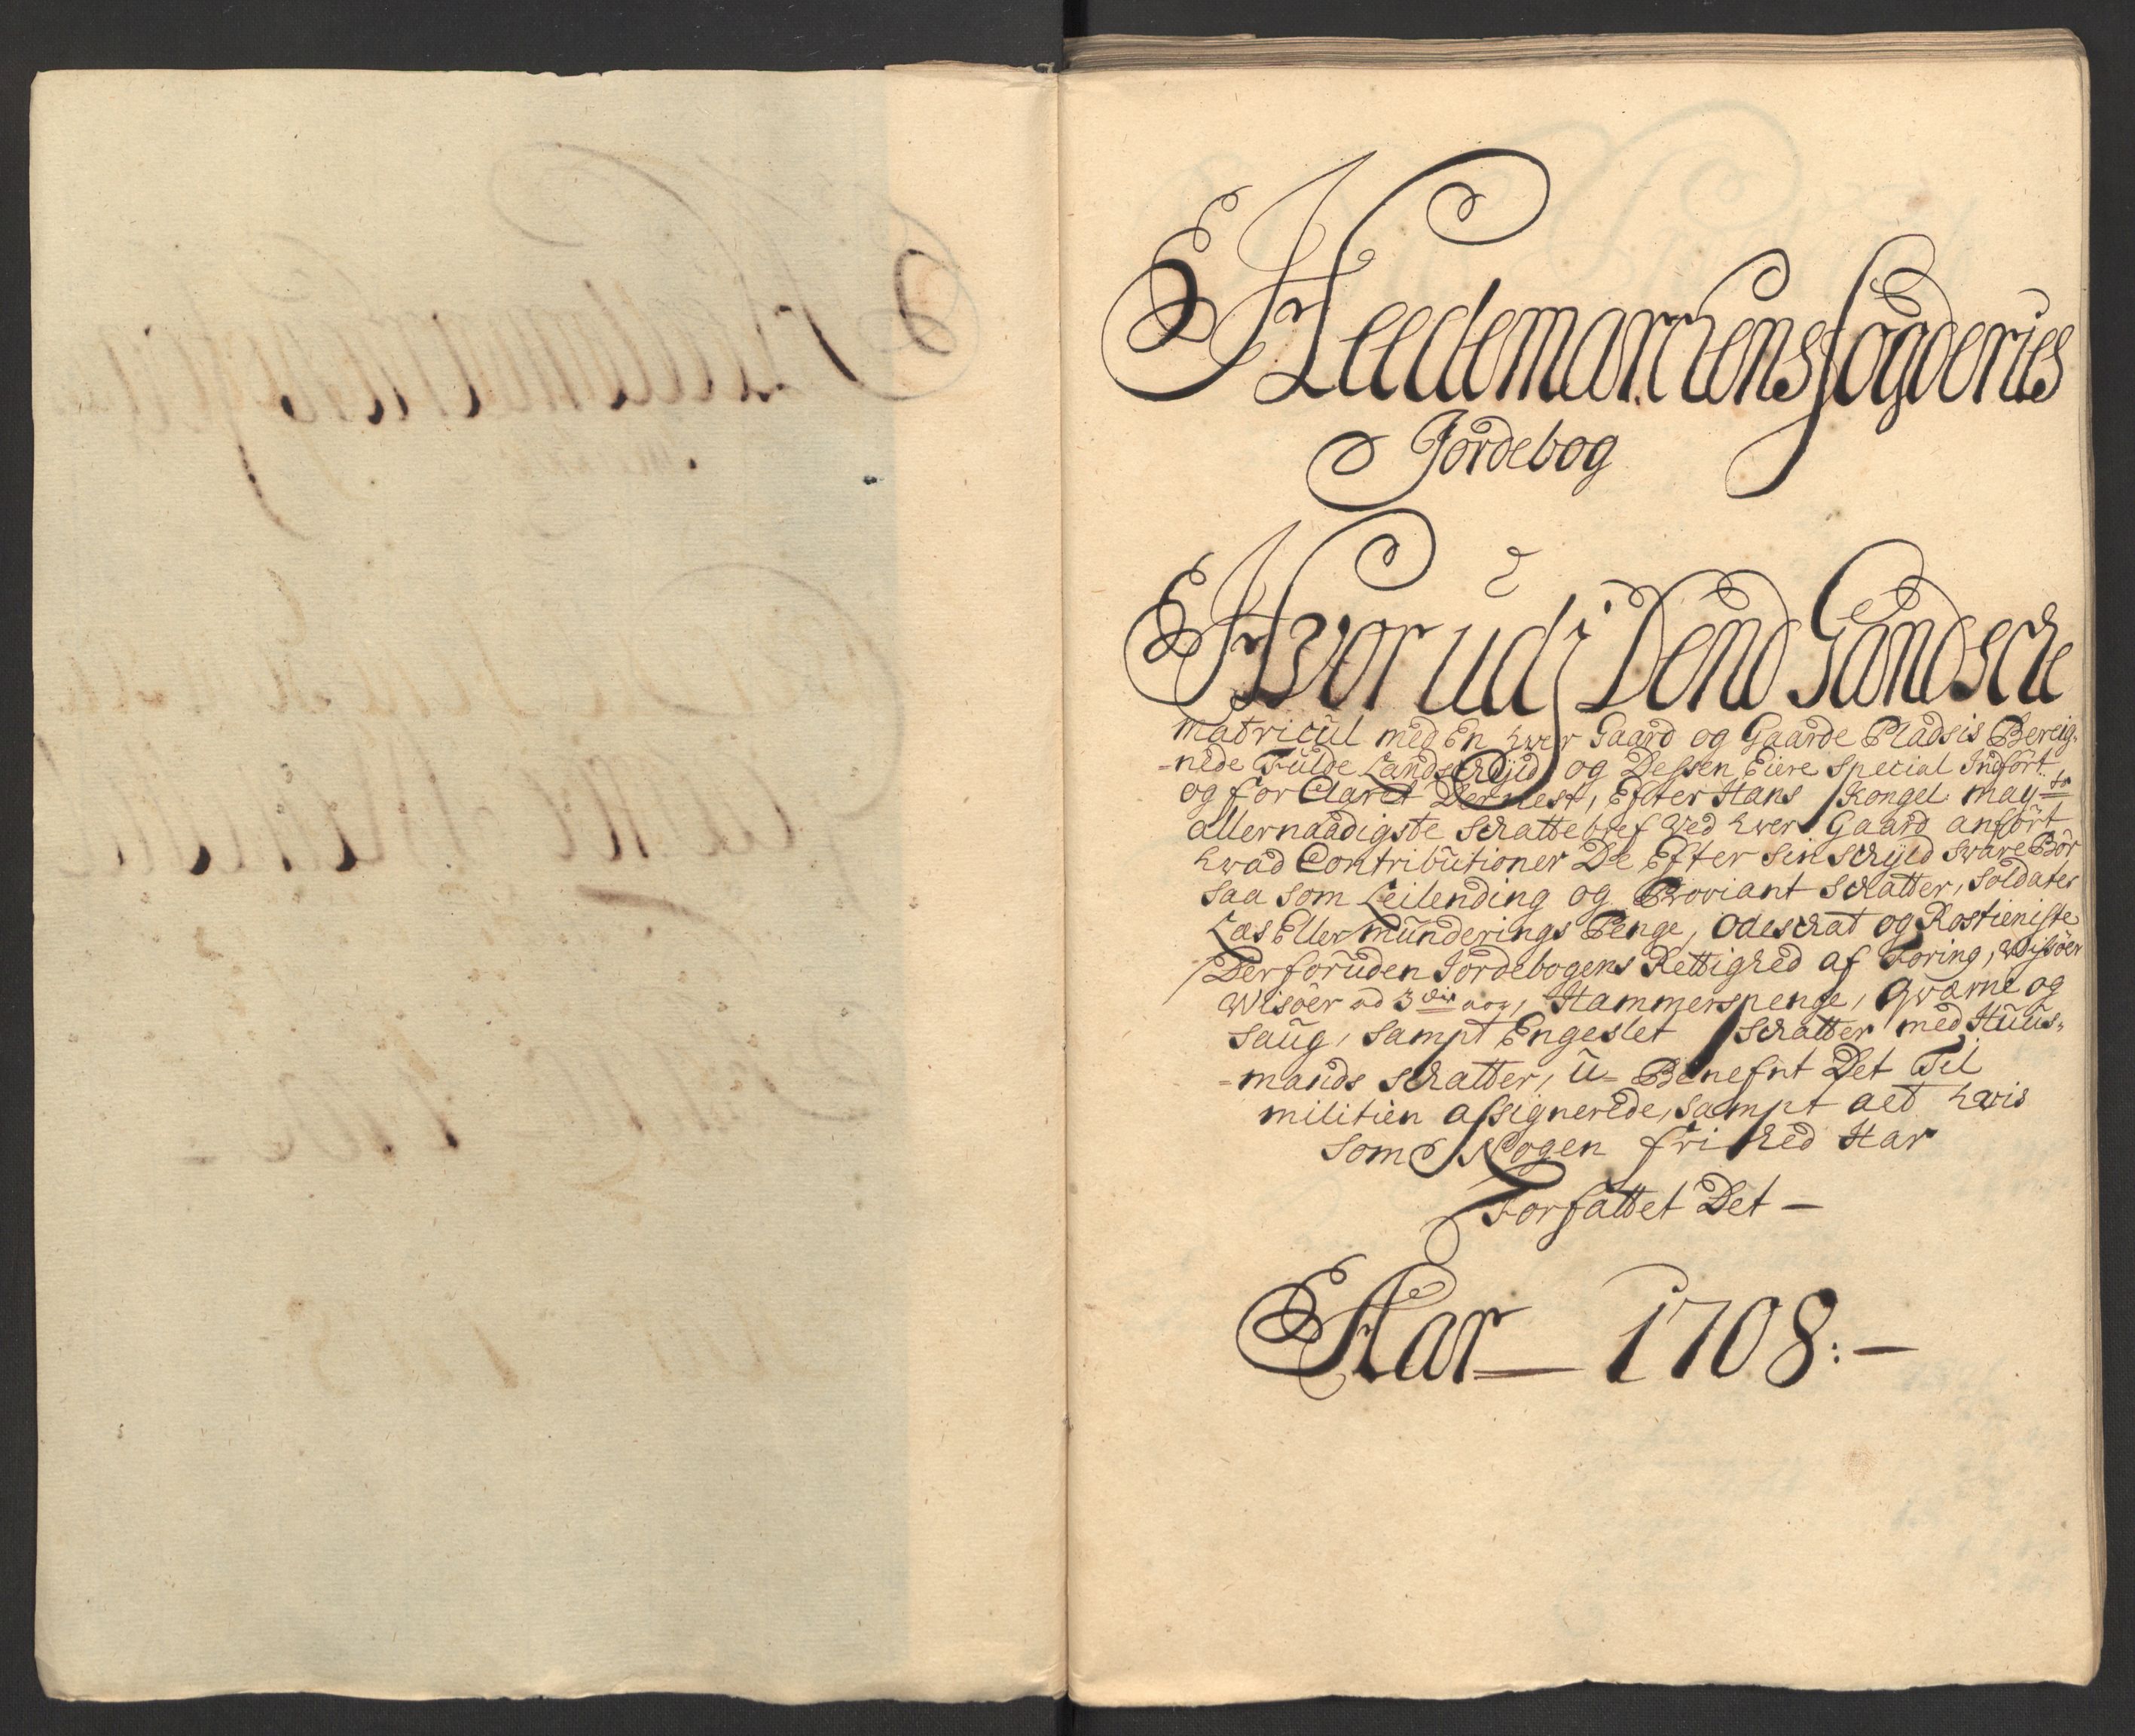 Heedemarckens fogderies
Jordebog
Hvorudj Dend Gandsche
matricul med En hver Gaard og Gaarde Pladsis Bereig-
-nede Fulde Landschyld og Dessen Eiere Special Indfört
og forClaret Dernest, Efter Hans Kongel: may:ts
allernaadigste Schattebref Ved hver Gaard anfört
hvad Contributioner De Efter sin schyld svare Bör
saa som Leilending og Proviant Schatter, Soldater
Læs Eller munderings Penge, Odeschat og Rostieniste
Derforuden Jordebogens Rettighed af Foring, Wissöer
Wisöer ad 3die aar, Hammerspenge, Qværne og
Saug, Sampt Engeslet Schatter med Huus-
-mands schatter, u-Benefnt Det Til
militien assignerede, sampt alt hvis
som Nogen frihed Har
Forfattet Det —
Aar — 1708:—